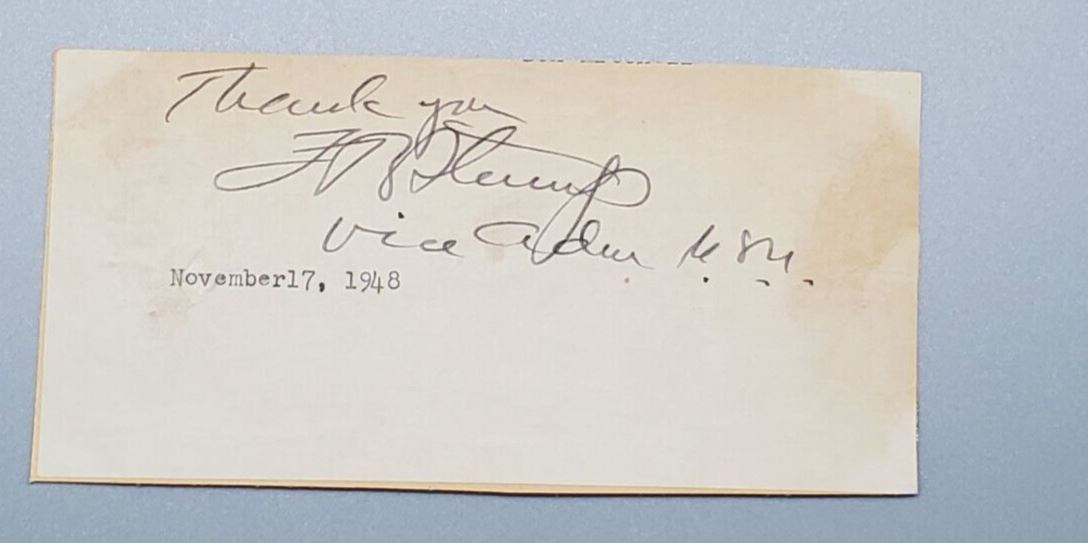 Thank you
F B Stump
Vice Adm. U.S.N.
November17, 1948